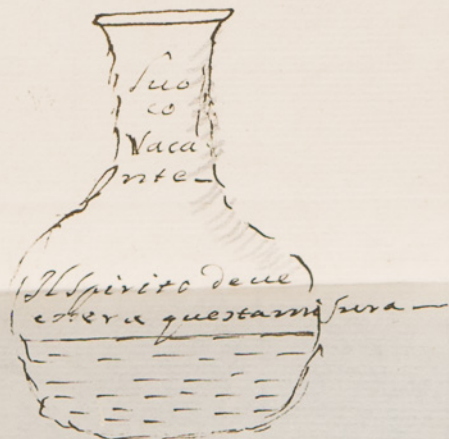 Luo
co
Vaca
nte
Il Spirito deve
essere questa misura